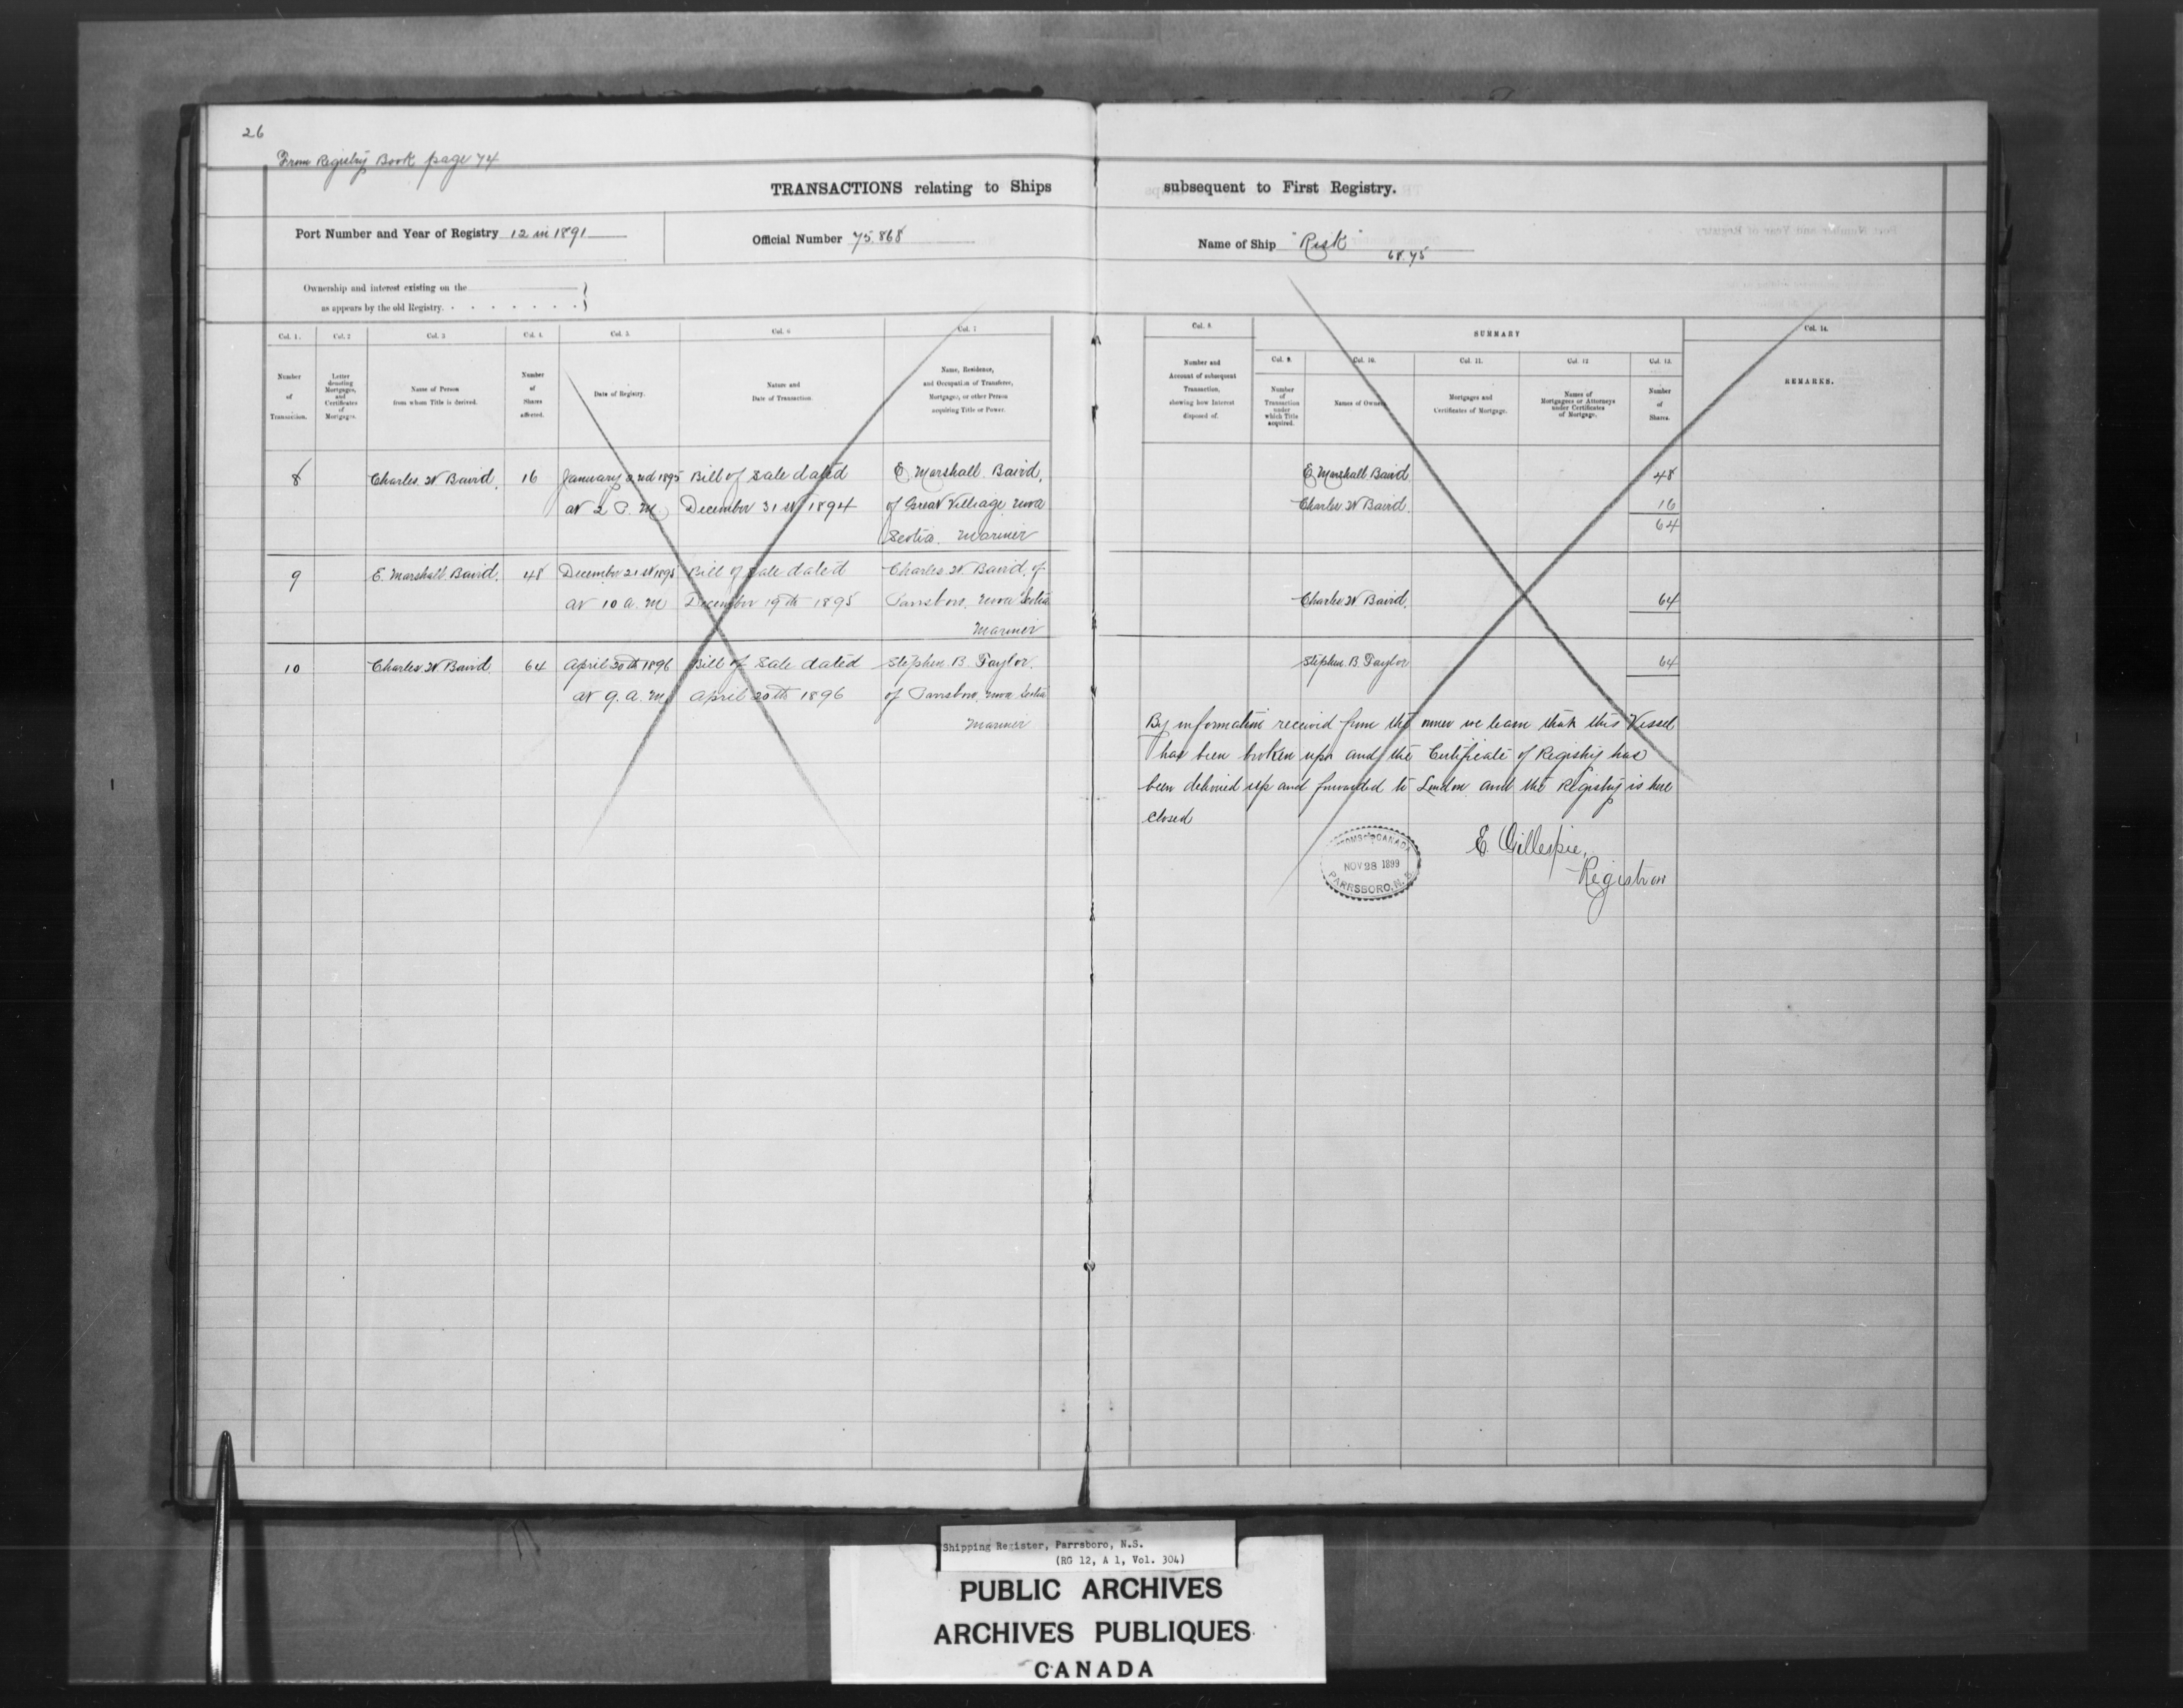 26
From Registry Book page 74
TRANSACTIONS relating to Ships subsequent to First Registry.
Port Number and Year of Registry 12 in 1891
Official Number 75.868
Name of Ship "Risk"
68.75
Ownership and interest existing on the
as appears by the old Registry.
Col. 1. Col. 2 Col. 3 Col. 4. Col. 5. Col. 6 Col. 7
Number of Transaction.
Letter denoting Mortgages, and Certificates of Mortgages.
Name of Person from whom Title is derived.
Number of Shares affected.
Date of Registry.
Nature and Date of Transaction.
Name, Residence, and Occupation of Transferee, Mortgagee, or other Person acquiring Title or Power.
Col. 8.
Number and Account of subsequent Transaction, showing how Interest disposed of.
SUMMARY
Col. 9. Col. 10. Col. 11. Col. 12 Col. 13.
Number of Transaction under which Title acquired.
Names of Owners
Mortgages and Certificates of Mortgage.
Names of Mortgagees or Attorneys under Certificates of Mortgage.
Number of Shares.
Col. 14.
REMARKS.
8 Charles W Baird, 16 January 2nd 1895 Bill of Sale dated E Marshall Baird,
at 2 P. M December 31st 1894 of Great Village Nova
Scotia. Mariner
E Marshall Baird 48
Charles W Baird. 16
64
9 E. Marshall Baird. 48 December 21st 1895 Bill of Sale dated Charles W. Baird, of
at 10 a. M December 19th 1895 Parrsboro, Nova Scotia
Mariner
Charles W Baird, 64
10 Charles W Baird. 64 April 30th 1896 Bill of Sale dated Stephen B. Taylor,
at 9. a. M April 20th 1896 of Parrsboro, Nova Scotia
Mariner
Stephen B. Taylor 64
By information received from the owner we learn that this Vessel
has been broken up and the Certificate of Registry has
been delivered up and forwarded to London and the Registry is here
closed
E. Gillespie,
Registrar
CUSTOMS CANADA
NOV 28 1899
PARRSBORO, N. S.
Shipping Register, Parrsboro, N.S.
(RG 12, A 1, Vol. 304)
PUBLIC ARCHIVES
ARCHIVES PUBLIQUES
CANADA